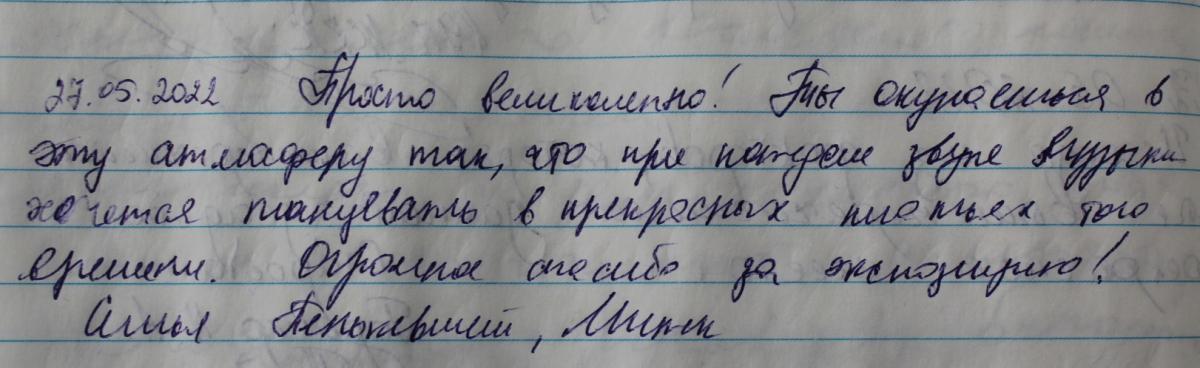 27.05.2022 Просто великолепно! Ты окунаешься в
эту атмосферу так, что при каждом звуке музыки
хочется танцевать в прекрасных платьях того
времени. Огромное спасибо за экспозицию!
Семья, Минск